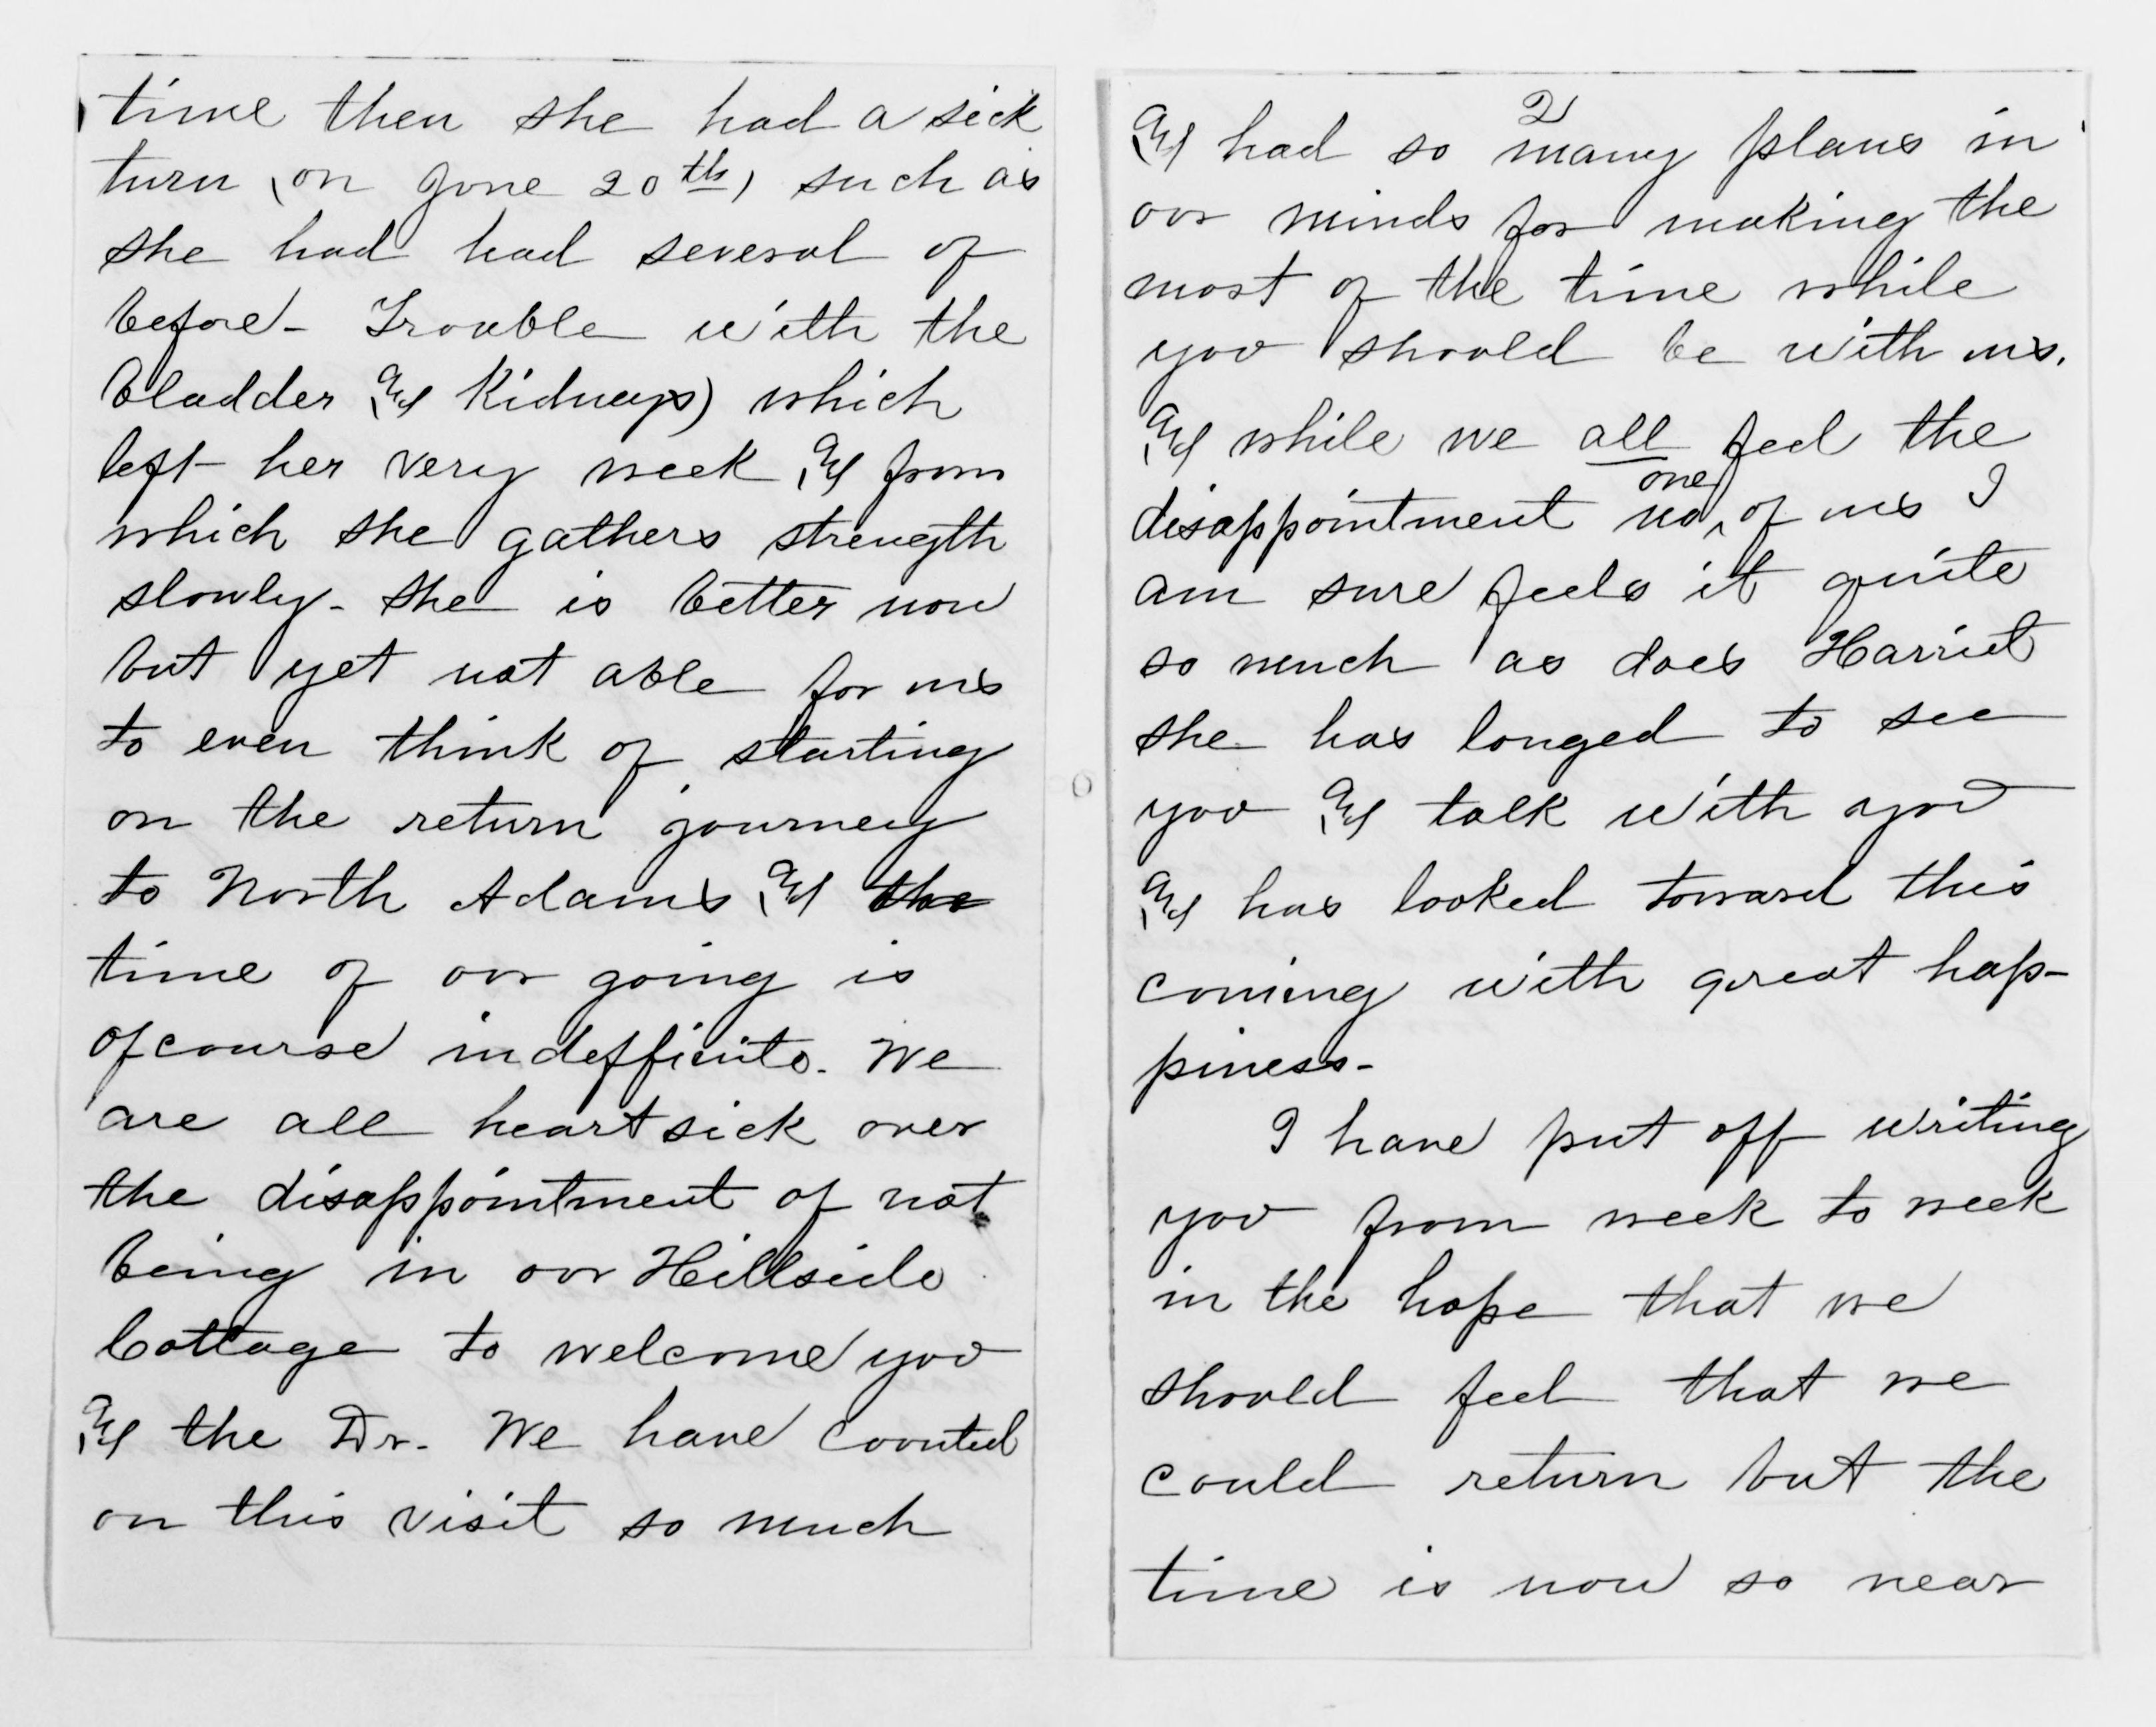 time then she had a sick
turn (on June 20th, such as
she had had several of
before - Trouble with the
bladder & Kidneys) which
left her very week & from
which she gathers strength
slowly - she is better now
but yet not able for us
to even think of starting
on the return journey
to North Adams & the
time of our going is
ofcourse indeffinite. We
are all heartsick over
the disappointment of not
being in our Hillside
Cottage to welcome you
& the Dr. We have counted
on this visit so much
2
& had so many plans in
our minds for making the
most of the time while
you should be with us.
& while we all feel the
disappointment no one of us I
am sure feels it quite
so much as does Harriet
she has longed to see
you & talk with you
& has looked toward this
coming with great hap-
piness -
I have put off writing
you from week to week
in the hope that we
should feel that we
could return but the
time is now so near